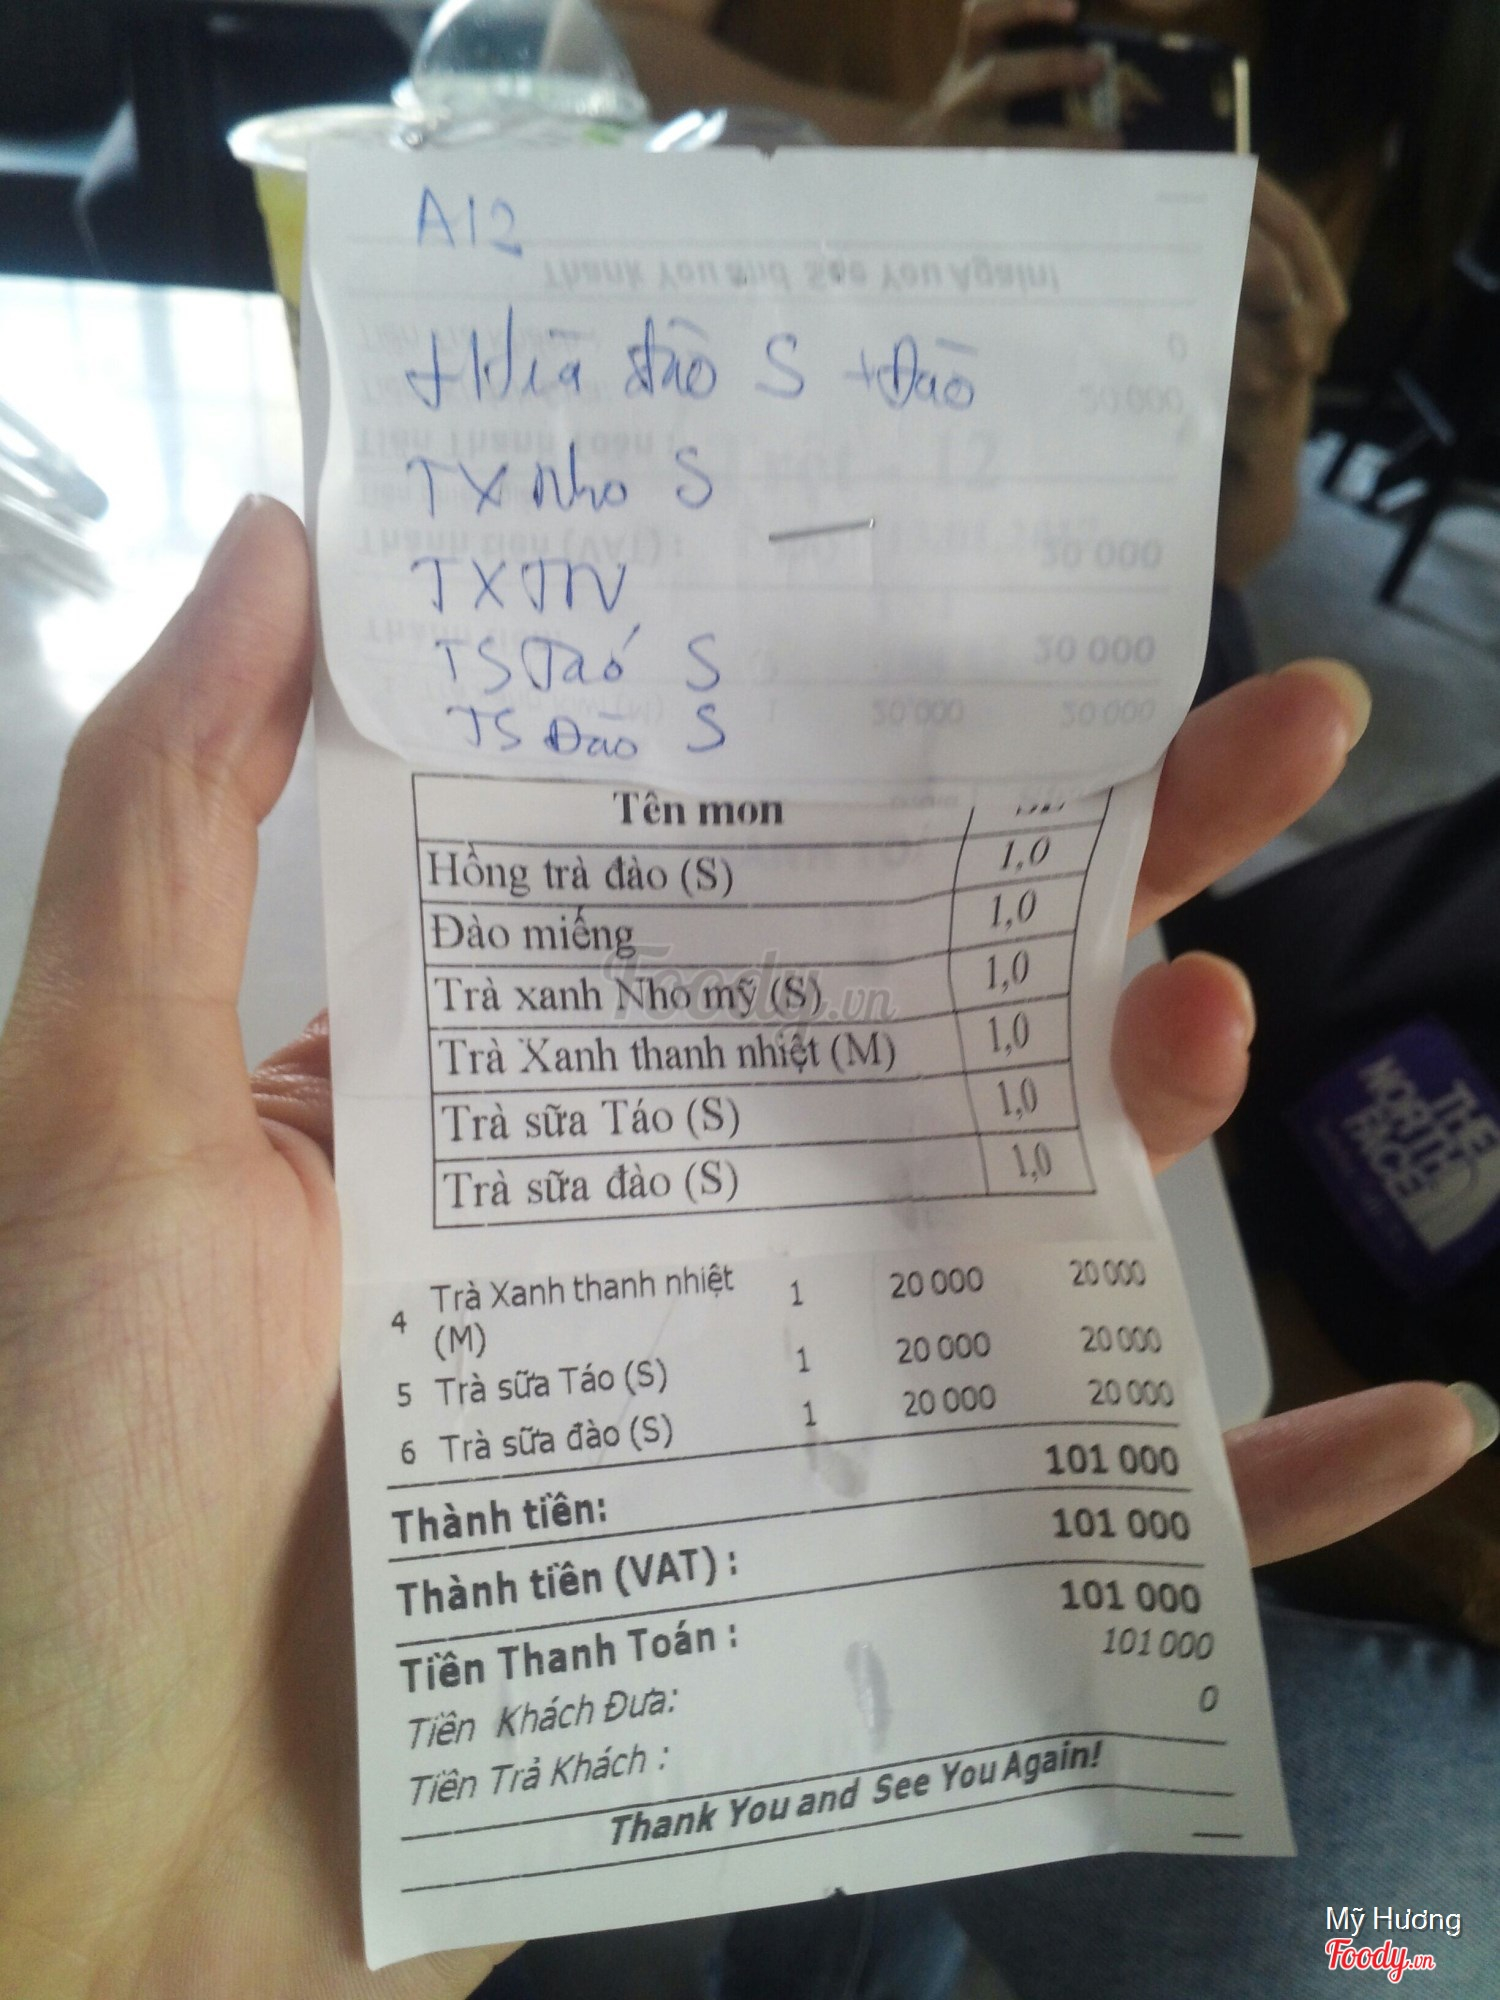 A12
đào S + Đào
TX Nho S
TXTN
TS Táo S
TS Đào S
Tên mon
Hồng trà đào (S) 1,0
Đào miếng 1,0
Trà xanh Nho mỹ (S) 1,0
Trà Xanh thanh nhiệt (M) 1,0
Trà sữa Táo (S) 1,0
Trà sữa đào (S) 1,0
4 Trà Xanh thanh nhiệt 1 20 000 20 000
(M)
5 Trà sữa Táo (S) 1 20 000 20 000
6 Trà sữa đào (S) 1 20 000 20 000
Thành tiền: 101 000
Thành tiền (VAT) : 101 000
Tiền Thanh Toán : 101 000
Tiền Khách Đưa: 101 000
Tiền Trả Khách : 0
Thank You and See You Again!
Foody.vn
THE
NORTH
FACE
Mỹ Hương
Foody.vn